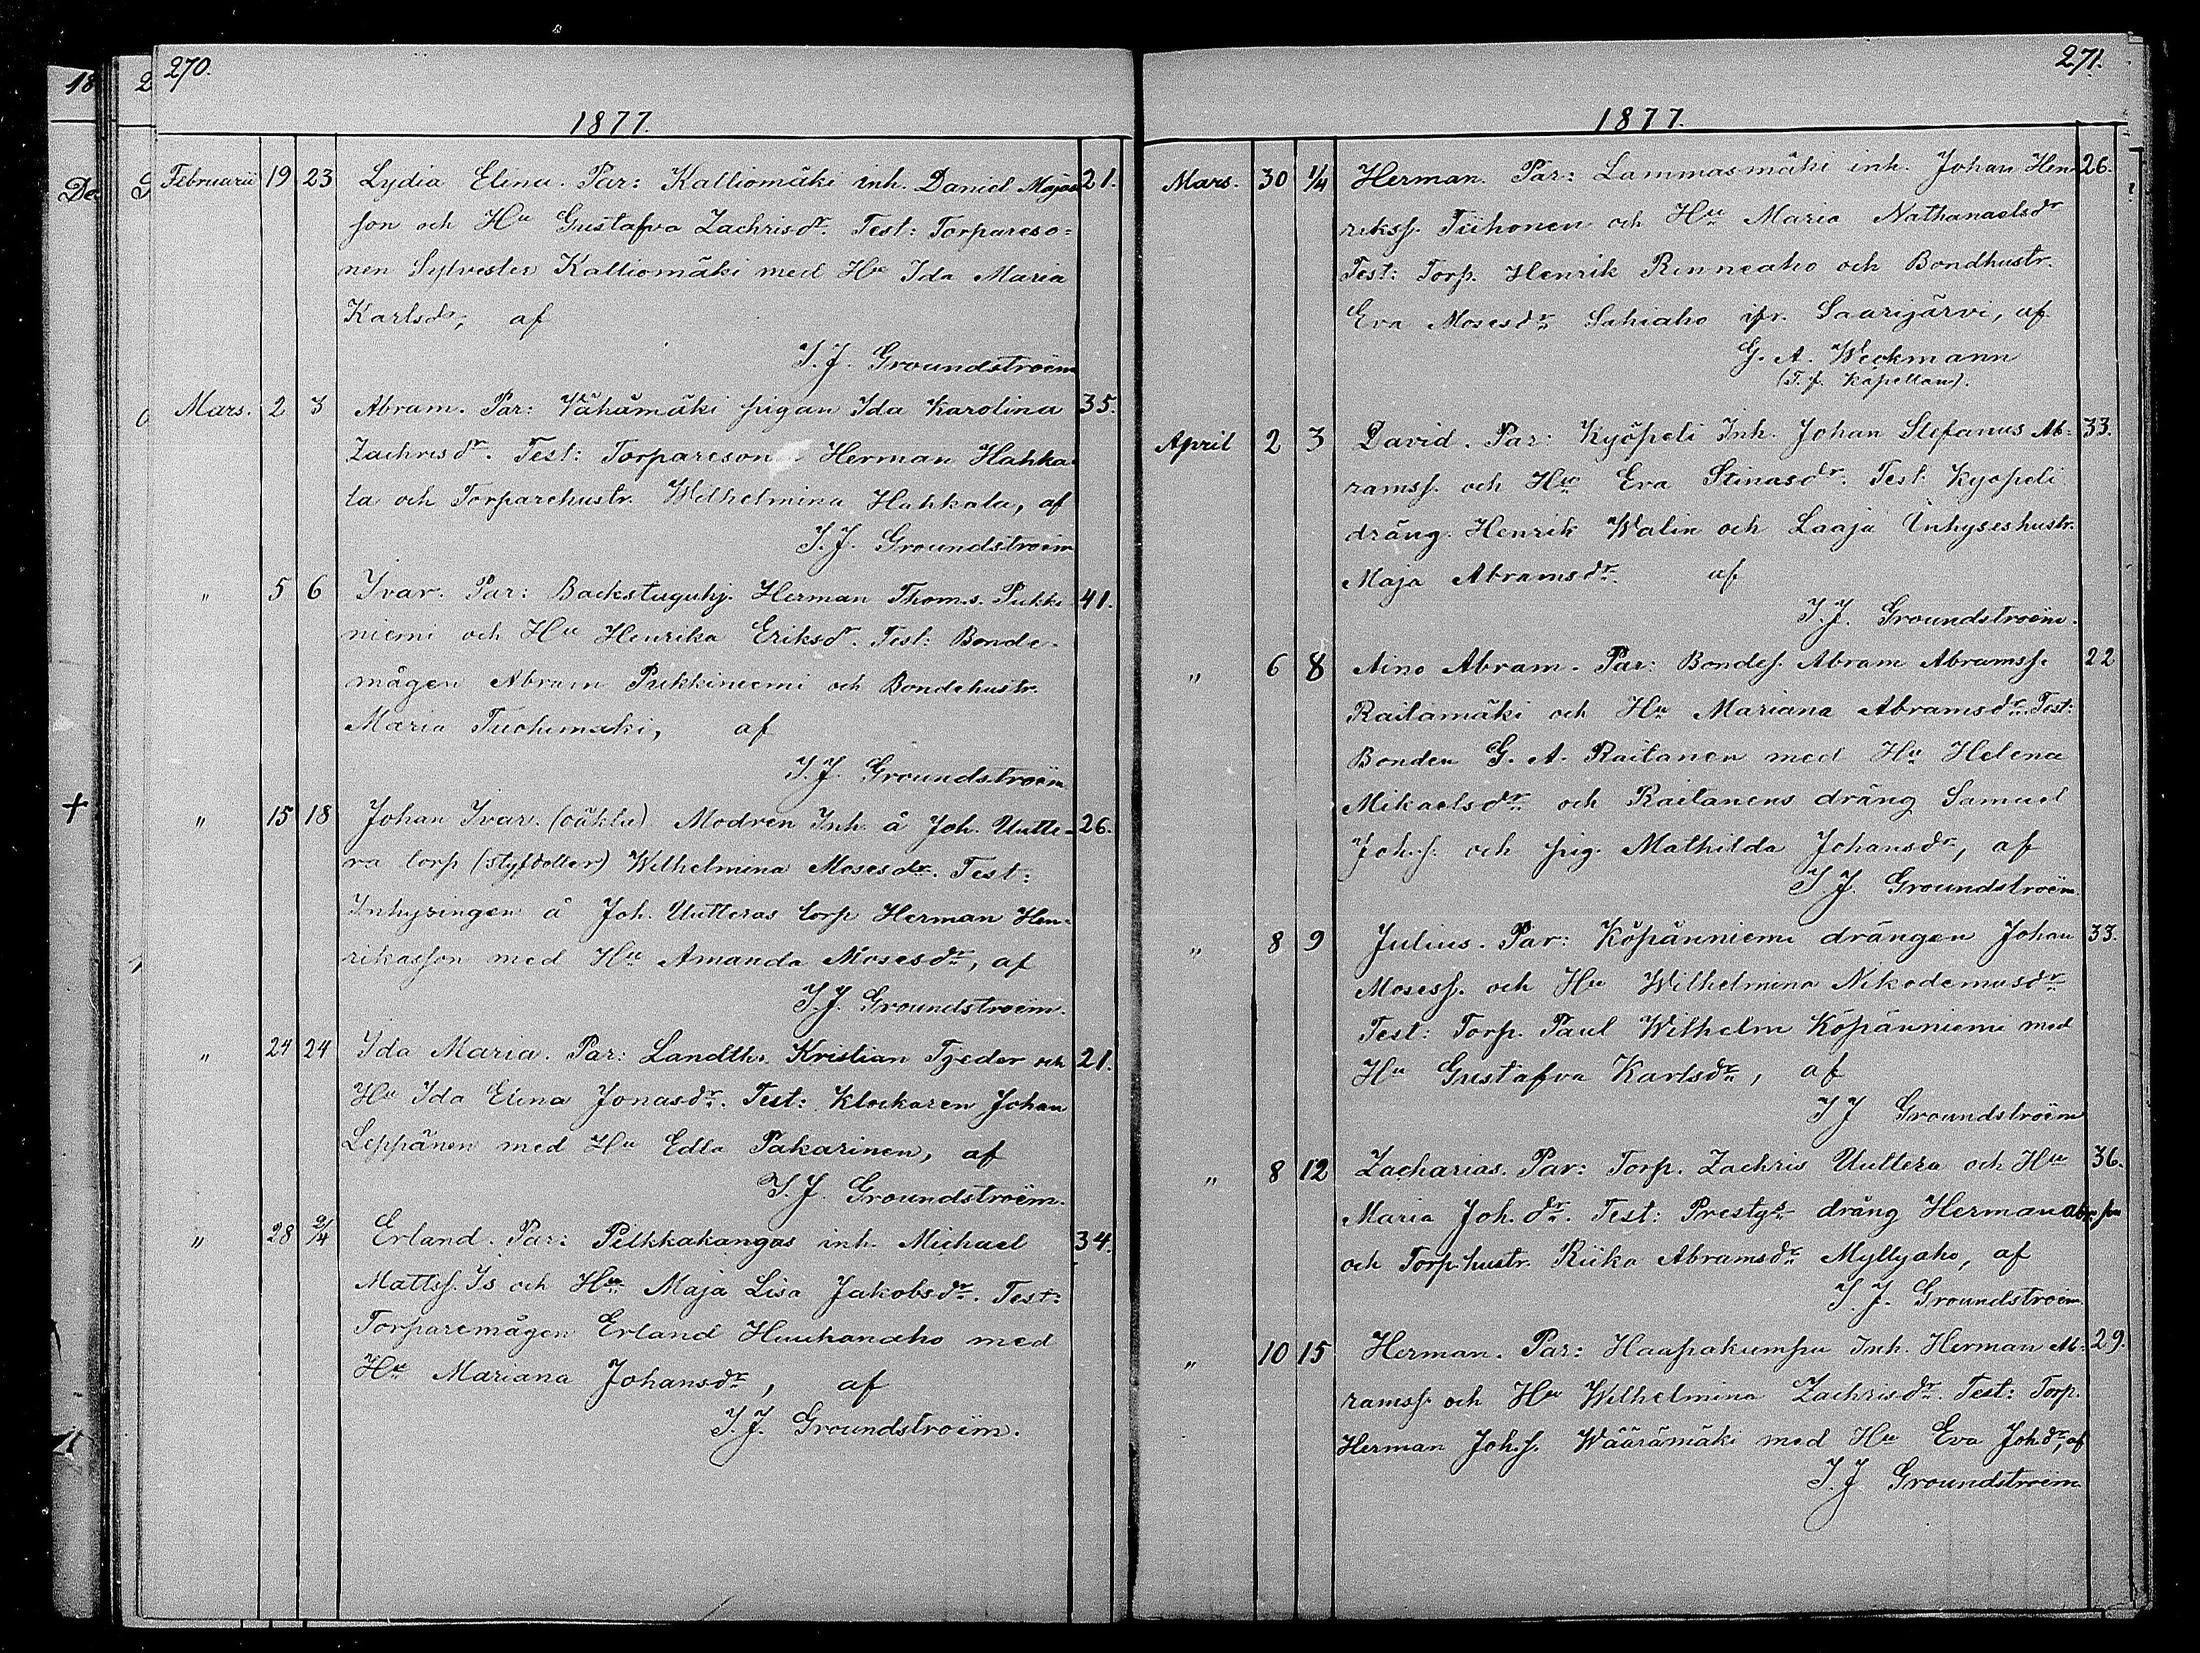 270.
1877.
Februarii 19 23 Lydia Elena. Par: Kalliomäki inh. Daniel Majas 21.
son och Hu Gustafva Zachrisdr. Test: Torpareso=
nen Sylvester Kalliomäki med Hu Ida Maria
Karlsdr, af
I. J. Groundstroëm
Mars. 2 3 Abram. Par: Vähämäki pigan Ida Karolina 35.
Zachrisdr. Test: Torpareson Herman Hahka
la och Torparehustr. Wilhelmina Hahkala, af
I. J. Groundstroëm
" 5 6 Ivar. Par: Backstuguhj. Herman Thoms. Pukki 41.
niemi och Hu Henrika Eriksdr. Test: Bonde-
mågen Abram Pukkiniemi och Bondehustr.
Maria Tuohimäki, af
I. J. Groundstroëm
" 15 18 Johan Ivar. (oäkta) Modren Inh. å Joh. Uutte- 26.
ra torp (styfdotter) Wilhelmina Mosesdr. Test:
Inhysingen å Joh. Uutteras torp Herman Hen-
riksson med Hu Amanda Mosesdr, af
I. J. Groundstroëm.
" 24 24 Ida Maria. Par: Landth. Kristian Tjeder och 21.
Hu Ida Elina Jonasdr. Test: Klockaren Johan
Leppänen med Hu Edla Pakarinen, af
I. J. Groundstroëm.
" 28 2/4 Erland. Par: Pilkkakangas inh. Michael 34.
Mattss. Is och Hu Maja Lisa Jakobsdr. Test:
Torparemågen Erland Huuhanaho med
Hu Mariana Johansdr, af
I. J. Groundstroëm.
271.
1877.
Mars. 30 1/4 Herman. Par: Lammasmäki inh. Johan Hen 26.
rikss. Tiihonen och Hu Maria Nathanaelsdr
Test: Torp. Henrik Rinneaho och Bondhustr.
Eva Mosesdr Sahiaho ifr. Saarijärvi, af
G. A. Weckmann
(T. f. Kapellan).
April 2 3 David. Par: Kyöpeli Inh. Johan Stefanus Ab- 33.
ramss. och Hu Eva Stinasdr. Test: Kyöpeli
dräng. Henrik Walin och Laaja Inhyseshustr.
Maja Abramsdr. af
I. J. Groundstroëm.
" 6 8 Aino Abram. Par: Bondes. Abram Abramss. 22
Raitamäki och Hu Mariana Abramsdr. Test:
Bonden G. A. Raitanen med Hu Helena
Mikaelsdr och Raitanens dräng Samuel
Joh.s. och pig. Mathilda Johansdr, af
I. J. Groundstroëm
" 8 9 Julius. Par: Köpänniemi drängen Johan 33.
Mosess. och Hu Wilhelmina Nikodemusdr
Test: Torp. Paul Wilhelm Köpänniemi med
Hu Gustafva Karlsdr, af
I J Groundstroëm
" 8 12 Zacharias. Par: Torp. Zachris Uuttera och Hu 36.
Maria Joh.dr. Test: Prestgs dräng Herman
och Torp.hustr. Riika Abramsdr Myllyaho, af
I. J. Groundstroëm.
" 10 15 Herman. Par: Haapakumpu Inh. Herman Ab- 29.
ramss. och Hu Wilhelmina Zachrisdr. Test: Torp.
Herman Joh.s. Wäärämäki med Hu Eva Joh.dr, af
I. J Groundstroëm